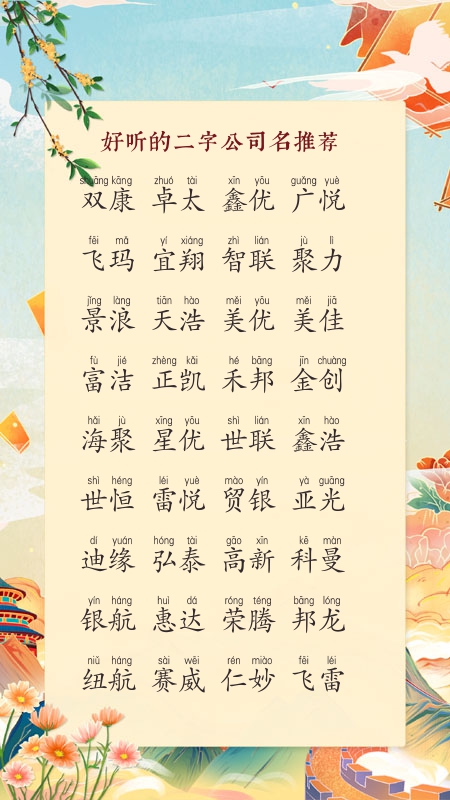 好听的二字公司名推荐
shuāng kāng zhuó tài xīn yōu guǎng yuè
双康 卓太 鑫优 广悦
fēi mǎ yí xiáng zhì lián jù lì
飞玛 宜翔 智联 聚力
jǐng làng tiān hào měi yōu měi jiā
景浪 天浩 美优 美佳
fù jié zhèng kǎi hé bāng jīn chuàng
富洁 正凯 禾邦 金创
hǎi jù xīng yōu shì lián xīn hào
海聚 星优 世联 鑫浩
shì héng léi yuè mào yín yà guāng
世恒 雷悦 贸银 亚光
dí yuán hóng tài gāo xīn kē màn
迪缘 弘泰 高新 科曼
yín háng huì dá róng téng bāng lóng
银航 惠达 荣腾 邦龙
niǔ háng sài wēi rén miào fēi léi
纽航 赛威 仁妙 飞雷